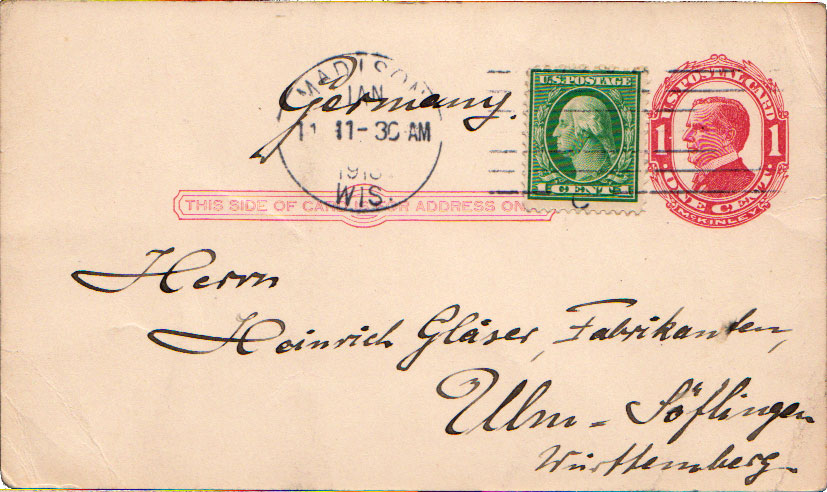 MADISON
JAN
11 11-30 AM
WIS.
Germany.
U.S. POSTAGE
1 CENT 1
U.S. POSTAL CARD
1 1
ONE CENT
McKINLEY
THIS SIDE OF CARD IS FOR ADDRESS ONLY
Herrn
Heinrich Gläser, Fabrikanten,
Ulm - Söflingen
Württemberg